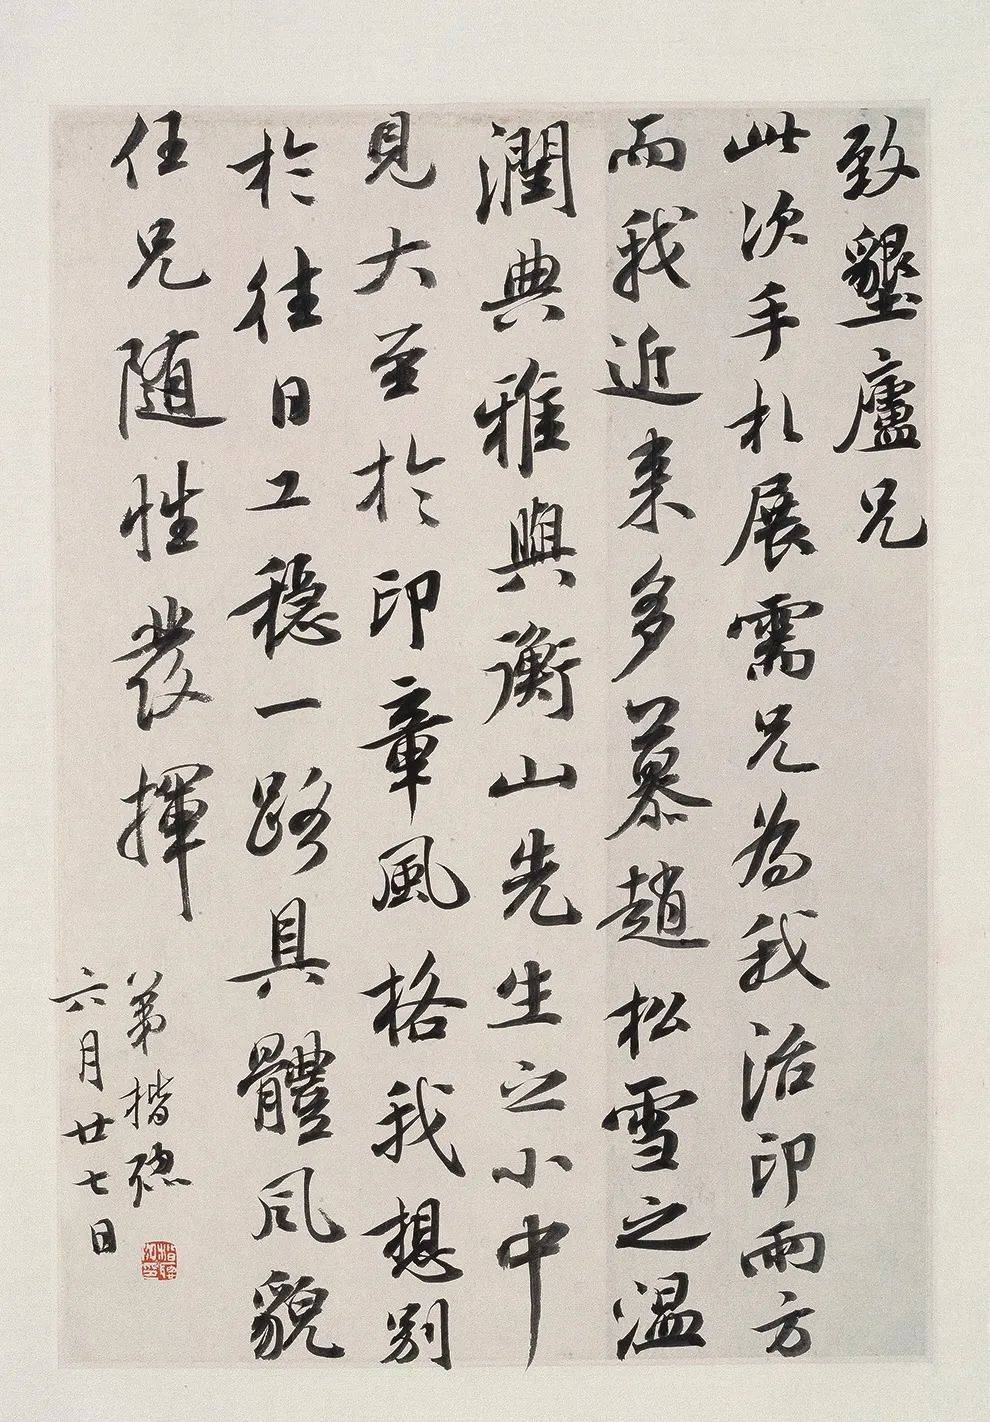 致墾廬兄
此次手札展需兄為我治印兩方
而我近来多慕趙松雪之温
潤典雅與衡山先生之小中
見大至於印章風格我想別
於往日工穩一路具體风貌
任兄随性發揮
弟楷
六月廿七日